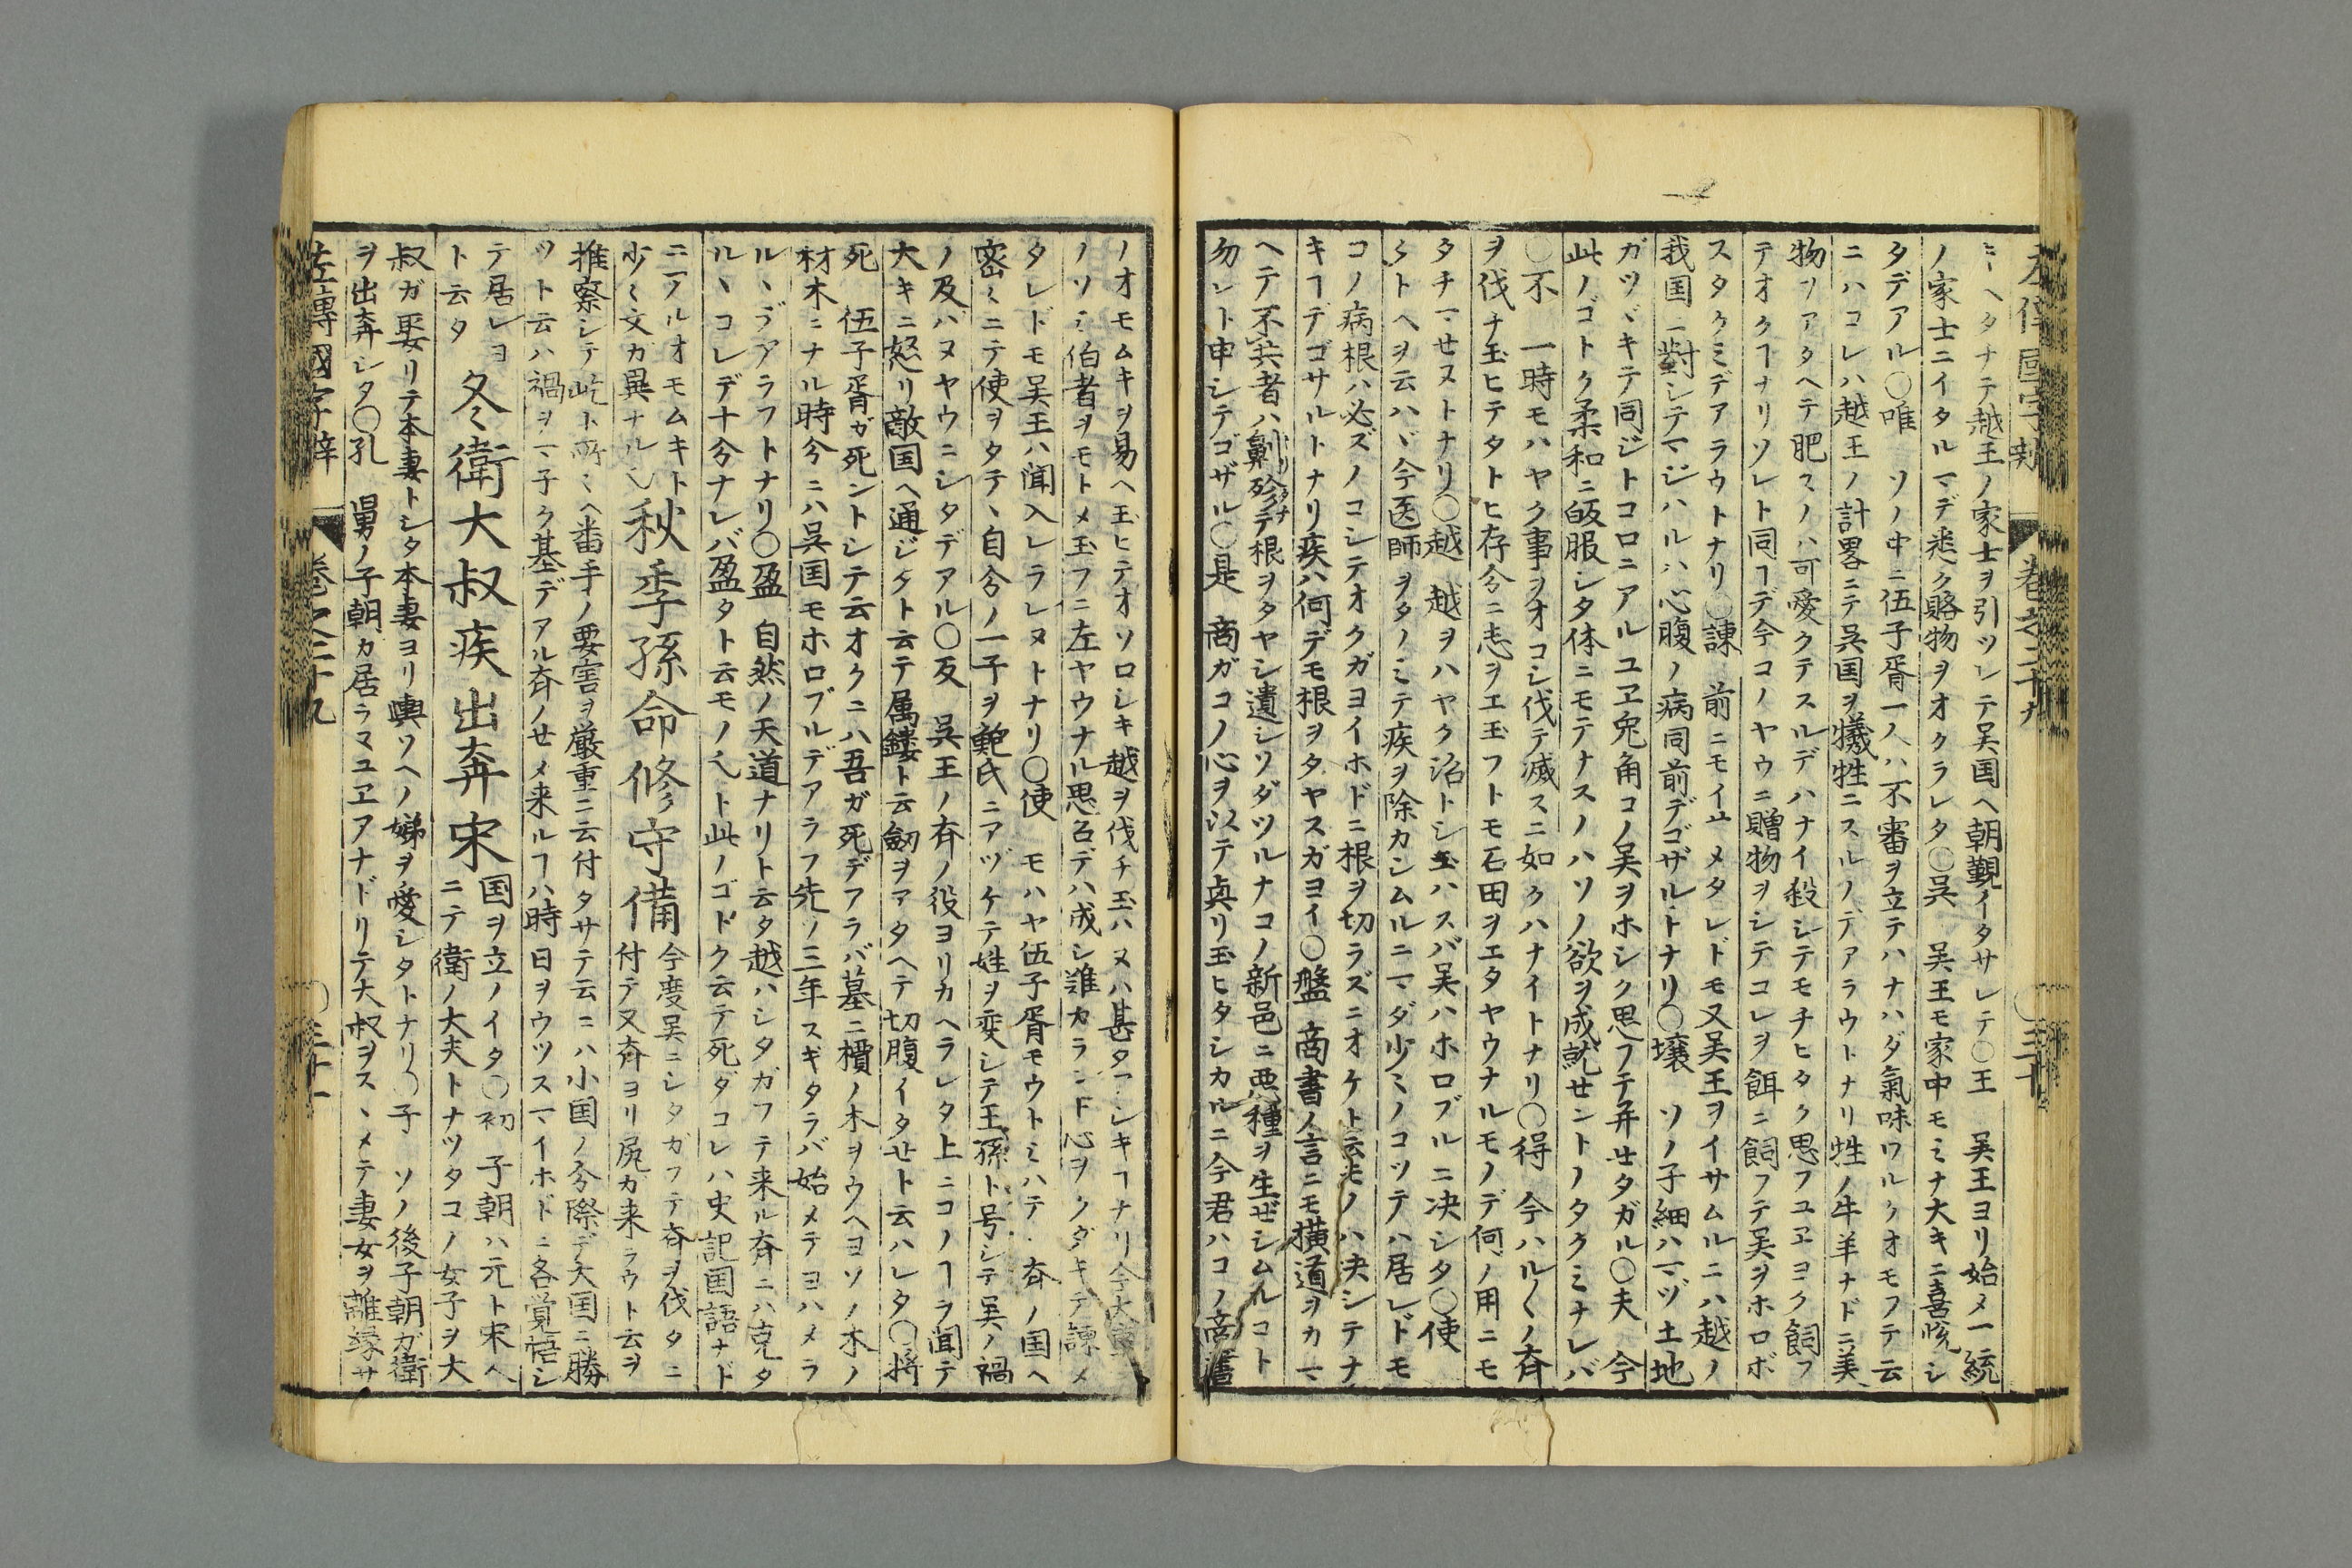 左傳國字辯 卷之二十九 〇三十
ミヘタナテ越王ノ家士ヲ引ツレテ吴国ヘ朝覲イタサレテ〇王 吴王ヨリ始メ一統
ノ家士ニイタルマデ悉ク賂物ヲオクラレタ〇吴 吴王モ家中モミナ大キニ喜悦シ
タデアル〇唯 ソノ中ニ伍子胥一人ハ不審ヲ立テハナハダ氣味ワルクオモフテ云
ニハコレハ越王ノ計畧ニテ吴国ヲ犠牲ニスルノデアラウトナリ牲ノ牛羊ナドニ美
物ヲアタヘテ肥スノハ可愛クテスルデハナイ殺シテモチヒタク思フユヱヨク飼フ
テオクヿナリソレト同ヿデ今コノヤウニ贈物ヲシテコレヲ餌ニ飼フテ吴ヲホロボ
スタクミデアラウトナリ〇諫 前ニモイサメタレドモ又吴王ヲイサムルニハ越ノ
我国ニ對シテマジハルハ心腹ノ病同前デゴザルトナリ〇壌 ソノ子細ハマヅ土地
ガツヾキテ同ジトコロニアルユヱ兎角コノ吴ヲホシク思フテ并セタガル〇夫 今
此ノゴトク柔和ニ皈服シタ体ニモテナスノハソノ欲ヲ成就セントノタクミナレバ
〇不 一時モハヤク事ヲオコシ伐テ滅スニ如クハナイトナリ〇得 今ハル〱ノ斉
ヲ伐チ玉ヒテタトヒ存分ニ志ヲエ玉フトモ石田ヲエタヤウナルモノデ何ノ用ニモ
タチマセヌトナリ〇越 越ヲハヤク沼トシ玉ハスバ吴ハホロブルニ决シタ〇使
タトヘヲ云ハヾ今医師ヲタノミテ疾ヲ除カシムルニマダ少ミノコツテハ居レドモ
コノ病根ハ必ズノコシテオクガヨイホドニ根ヲ切ラズニオケト云モノハ决シテナ
キヿデゴサルトナリ疾ハ何デモ根ヲタヤスガヨイ〇盤 商書ノ言ニモ横道ヲカマ
ヘテ不共者ハ劓殄テ根ヲタヤシ遺シソダツルナコノ新邑ニ悪種ヲ生ゼシムルコト
勿レト申シテゴザル〇是 商ガコノ心ヲ以テ眞リ玉ヒタシカルニ今君ハコノ商書
ノオモムキヲ易ヘ玉ヒテオソロシキ越ヲ伐チ玉ハヌハ甚タアシキヿナリ今大
ノソミ伯者ヲモトメ玉フニ左ヤウナル思召デハ成シ難カラント心ヲクダキテ諫メ
タレドモ吴王ハ闻入レラレヌトナリ〇使 モハヤ伍子胥モウトミハテ、斉ノ国ヘ
密ミニテ使ヲタテ、自分ノ一子ヲ鮑氏ニアヅケテ姓ヲ変シテ王孫ト号シテ吴ノ禍
ノ及バヌヤウニシタデアル〇反 吴王ノ斉ノ役ヨリカヘラレタ上ニコノヿヲ闻テ
大キニ怒リ敵国ヘ通ジタト云テ属鏤ト云劔ヲアタヘテ切腹イタセト云ハレタ〇将
死 伍子胥ガ死ントシテ云オクニハ吾ガ死デアラバ墓ニ檟ノ木ヲウヘヨソノ木ノ
材木ニナル時分ニハ吴国モホロブルデアラフ先ソ三年スギタラバ始メテヨハメラ
ル、デアラフトナリ〇盈 自然ノ天道ナリト云タ越ハシタガフテ来ル斉ニハ克タ
ル、コレデ十分ナレバ盈タト云モノ也ト此ノゴトク云テ死ダコレハ史記国語ナド
ニアルオモムキト
少ミ文ガ異ナル也 秋季孫命修守備 今度吴ニシタガフテ斉ヲ伐タニ
付テ又斉ヨリ尻ガ来ラウト云ヲ
推察シテ屹ト所ミヘ番手ノ要害ヲ嚴重ニ云付タサテ云ニハ小国ノ分際デ大国ニ勝
ツト云ハ禍ヲマ子ク基デアル斉ノセメ来ルヿハ時日ヲウツスマイホドニ各覚悟シ
テ居レヨ
ト云タ 冬衛大叔疾出奔宋 国ヲ立ノイタ〇初 子朝ハ元ト宋ヘ
ニテ衛ノ大夫トナツタコノ女子ヲ大
叔ガ娶リテ本妻トシタ本妻ヨリ輿ソヘノ娣ヲ愛シタトナリ〇子 ソノ後子朝ガ衛
ヲ出奔シタ〇孔 舅ノ子朝カ居ラヌユヱアナドリテ大叔ヲス、メテ妻女ヲ離縁サ
左傳國字辯 卷之二十九 〇三十一